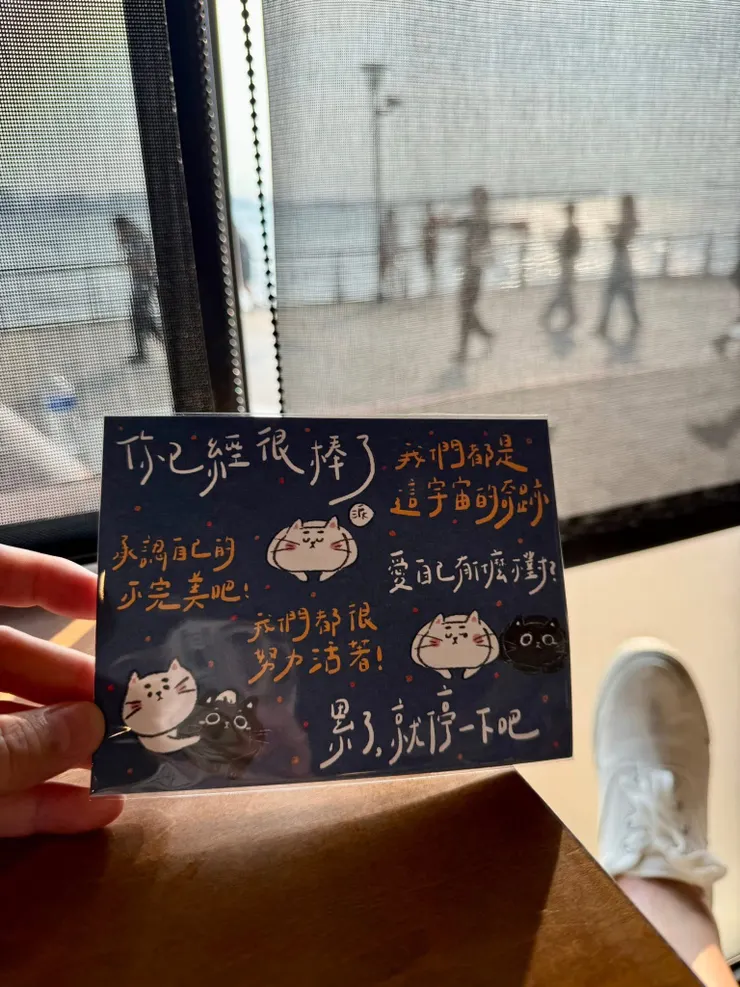 你已經很棒了
我們都是
這宇宙的奇跡
淚
承認自己的
不完美吧!
愛自己有什麼不對?
我們都很
努力活著!
累了,就停一下吧